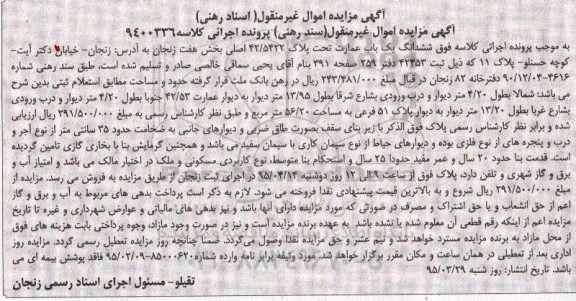 آگهی مزایده اموال غیرمنقول( اسناد رهنی)
آگهی مزایده اموال غیرمنقول(سند رهنی) پرونده اجرائی کلاسه۹۴۰۰۳۳۶
به موجب پرونده اجرائی کلاسه فوق ششدانگ یک باب عمارت تحت پلاک ۴۲/۵۴۲۲ اصلی بخش هفت زنجان به آدرس: زنجان- خیابان دکتر آیت-
کوچه حسنلو- پلاک ۱۱ که ذیل ثبت ۴۲۴۵۳ دفتر ۲۵۹ صفحه ۲۹۱ بنام آقای یحیی سماقی خالصی صادر و تسلیم شده است، طبق سند رهنی شماره
۴۶۱۶-۹۰/۱۲/۰۴ دفترخانه ۸۲ زنجان در قبال مبلغ ۲۴۳/۴۸۱/۰۰۰ ریال در رهن بانک ملت قرار گرفته حدود و مساحت مطابق استعلام ثبتی بدین شرح
می باشد: شمالا بطول ۴/۲۰ متر دیوار و درب ورودی بشارع شرقا بطول ۱۳/۹۵ متر دیوار به دیوار عمارت ۴۲/۵۳ جنوبا بطول ۴/۲۰ متر دیوار و درب ورودی
بشارع غربا بطول ۱۳/۲۰ متر دیوار به دیوار پلاک ۵۱ فرعی به مساحت ۵۶/۲۰ متر مربع و طبق نظر کارشناس رسمی به مبلغ ۲۹۱/۵۰۰/۰۰۰ ریال ارزیابی
شده و برابر نظر کارشناس رسمی پلاک فوق الذکر با زیر بنای سقف بصورت طاق ضربی و دیوارهای جانبی به ضخامت حدود ۳۵ سانتی متر از نوع آجر و
درب و پنجره های از نوع فلزی بوده و دیوارهای حیاط از نوع سیمان کاری با سیمان سفید می باشد و همچنین گرمایش بنا با بخاری گازی تامین گردیده
است. قدمت بنا حدود ۲۰ سال و عمر مفید حدودا ۲۵ سال و استحکام بنا متوسط، نوع کاربردی مسکونی و ملک در اختیار مالک می باشد و امتیاز آب و
برق و گاز شهری و تلفن دارد، پلاک فوق از ساعت ۹ الی ۱۲ روز دوشنبه ۹۵/۰۴/۱۴ در اجرای ثبت زنجان از طریق مزایده به فروش می رسد. مزایده از
مبلغ ۲۹۱/۵۰۰/۰۰۰ ریال شروع و به بالاترین قیمت پیشنهادی نقدا فروخته می شود. لازم به ذکر است پرداخت بدهی های مربوط به آب و برق و گاز
اعم از حق انشعاب و یا حق اشتراک و مصرف در صورتی که مورد مزایده دارای آنها باشد و نیز بدهی های مالیاتی و عوارض شهرداری و غیره تا تاریخ
مزایده اعم از اینکه رقم قطعی آن معلوم شده یا نشده باشد به عهده برنده مزایده است و نیز در صورت وجود مازاد، وجوه پرداختی بابت هزینه های فوق
از محل مازاد به برنده مزایده مسترد خواهد شد و نیم عشر و حق مزایده نقدا وصول می‌گردد. ضمنا چنانچه روز مزایده تعطیل رسمی گردد. مزایده روز
اداری بعد از تعطیلی در همان ساعت و مکان مقرر برگزار خواهد شد. مورد وثیقه برابر نامه وارده شماره ۸۵۰۰۰۶۲۰-۹۵/۰۲/۰۹ فاقد پوشش بیمه ای می
باشد. تاریخ انتشار: روز شنبه ۹۵/۰۳/۲۹
تقیلو- مسئول اجرای اسناد رسمی زنجان